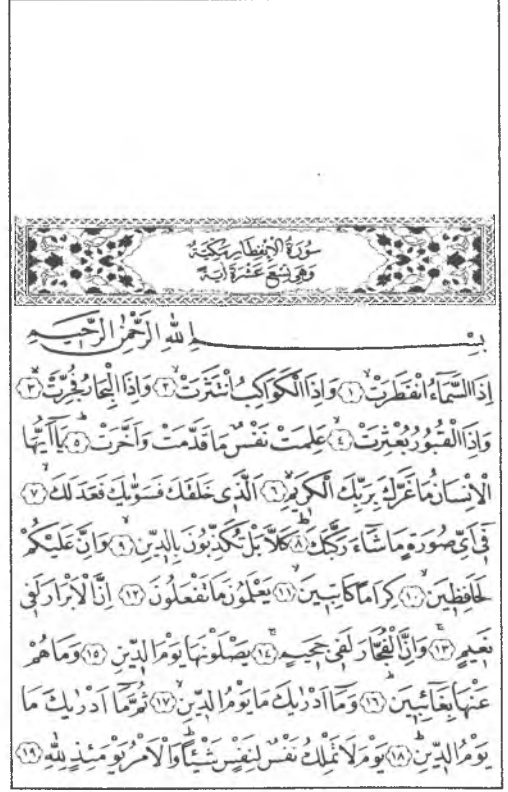 سُورَةُ الْاِنْفِطَارِ مَكِّيَّةٌ
وَهِيَ تِسْعَ عَشْرَةَ اٰيَةً
بِسْــــــــمِ اللّٰهِ الرَّحْمٰنِ الرَّحٖيمِ
اِذَا السَّمَٓاءُ انْفَطَرَتْۙ ﴿١﴾ وَاِذَا الْكَوَاكِبُ انْتَثَرَتْۙ ﴿٢﴾ وَاِذَا الْبِحَارُ فُجِّرَتْۙ ﴿٣﴾
وَاِذَا الْقُبُورُ بُعْثِرَتْۙ ﴿٤﴾ عَلِمَتْ نَفْسٌ مَا قَدَّمَتْ وَاَخَّرَتْؕ ﴿٥﴾ يَٓا اَيُّهَا
الْاِنْسَانُ مَا غَرَّكَ بِرَبِّكَ الْكَرٖيمِۙ ﴿٦﴾ اَلَّذٖي خَلَقَكَ فَسَوّٰيكَ فَعَدَلَكَۙ ﴿٧﴾
فٖٓي اَيِّ صُورَةٍ مَا شَٓاءَ رَكَّبَكَؕ ﴿٨﴾ كَلَّا بَلْ تُكَذِّبُونَ بِالدّٖينِۙ ﴿٩﴾ وَاِنَّ عَلَيْكُمْ
لَحَافِظٖينَۙ ﴿١٠﴾ كِرَامًا كَاتِبٖينَۙ ﴿١١﴾ يَعْلَمُونَ مَا تَفْعَلُونَ ﴿١٢﴾ اِنَّ الْاَبْرَارَ لَفٖي
نَعٖيمٍۚ ﴿١٣﴾ وَاِنَّ الْفُجَّارَ لَفٖي جَحٖيمٍۚ ﴿١٤﴾ يَصْلَوْنَهَا يَوْمَ الدّٖينِ ﴿١٥﴾ وَمَا هُمْ
عَنْهَا بِغَٓائِبٖينَۙ ﴿١٦﴾ وَمَٓا اَدْرٰيكَ مَا يَوْمُ الدّٖينِۙ ﴿١٧﴾ ثُمَّ مَٓا اَدْرٰيكَ مَا
يَوْمُ الدّٖينِؕ ﴿١٨﴾ يَوْمَ لَا تَمْلِكُ نَفْسٌ لِنَفْسٍ شَيْئًاؕ وَالْاَمْرُ يَوْمَئِذٍ لِلّٰهِ ﴿١٩﴾